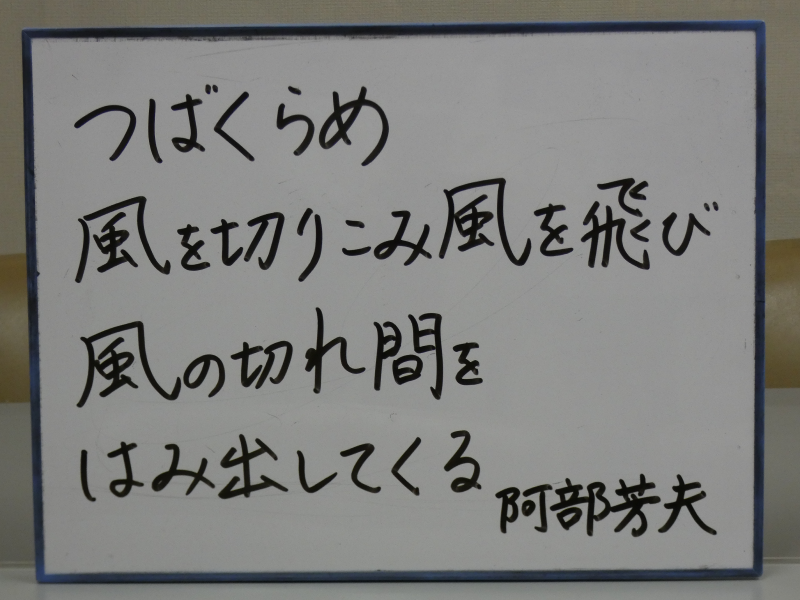 つばくらめ
風を切りこみ風を飛び
風の切れ間を
はみ出してくる
阿部芳夫